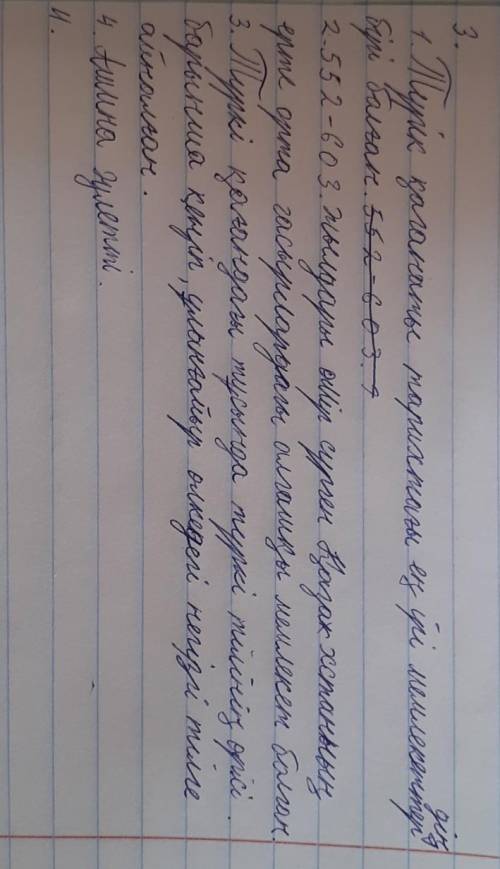 3.
1. Түрік қағанаты тарихтағы ең ірі мемлекеттер
дің
бірі болған. 552-603.
2. 552-603. жылдары өмір сүрген Қазақхстанның
ерте орта ғасырлардағы алғашқы мемлекет болған.
3. Түркі қағандағы тұсында түркі тілінің өрісі
барынша кеңіп, ұланғайыр өлкедегі негізгі тілге
айналған.
4. Ашина әулетті.
4.